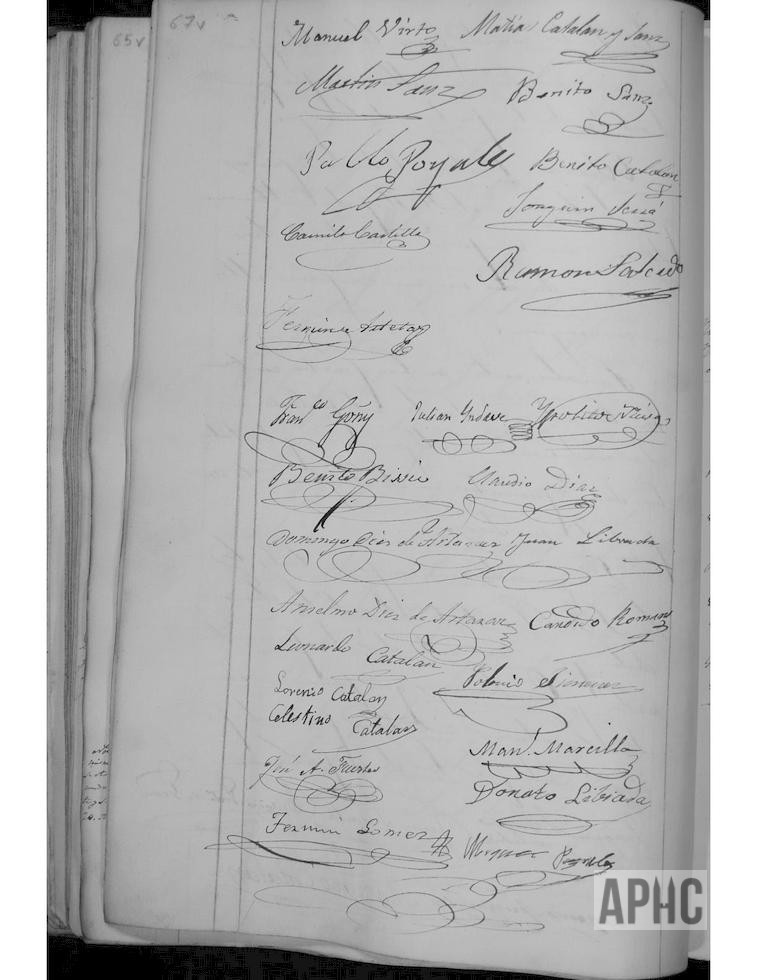 65v
67v
Manuel Virto Matias Catalan y Sanz
Martin Sanz Benito Sanz
Pablo Poyales Benito Catalan
Joaquin
Camilo Castillo
Ramon Salcedo
Fran.co Goñy Julian Yndave Ypolito
Benito Claudio Diaz
Domingo Diez de Artazcoz Juan Librada
Anselmo Diez de Artazcoz Candido Romano
Leonardo
Catalan
Lorenzo Catalan
Celestino Catalan
Man.l Marcilla
José A. Fuertes
Donato Librada
Fermin Gomez Miguel
APHC